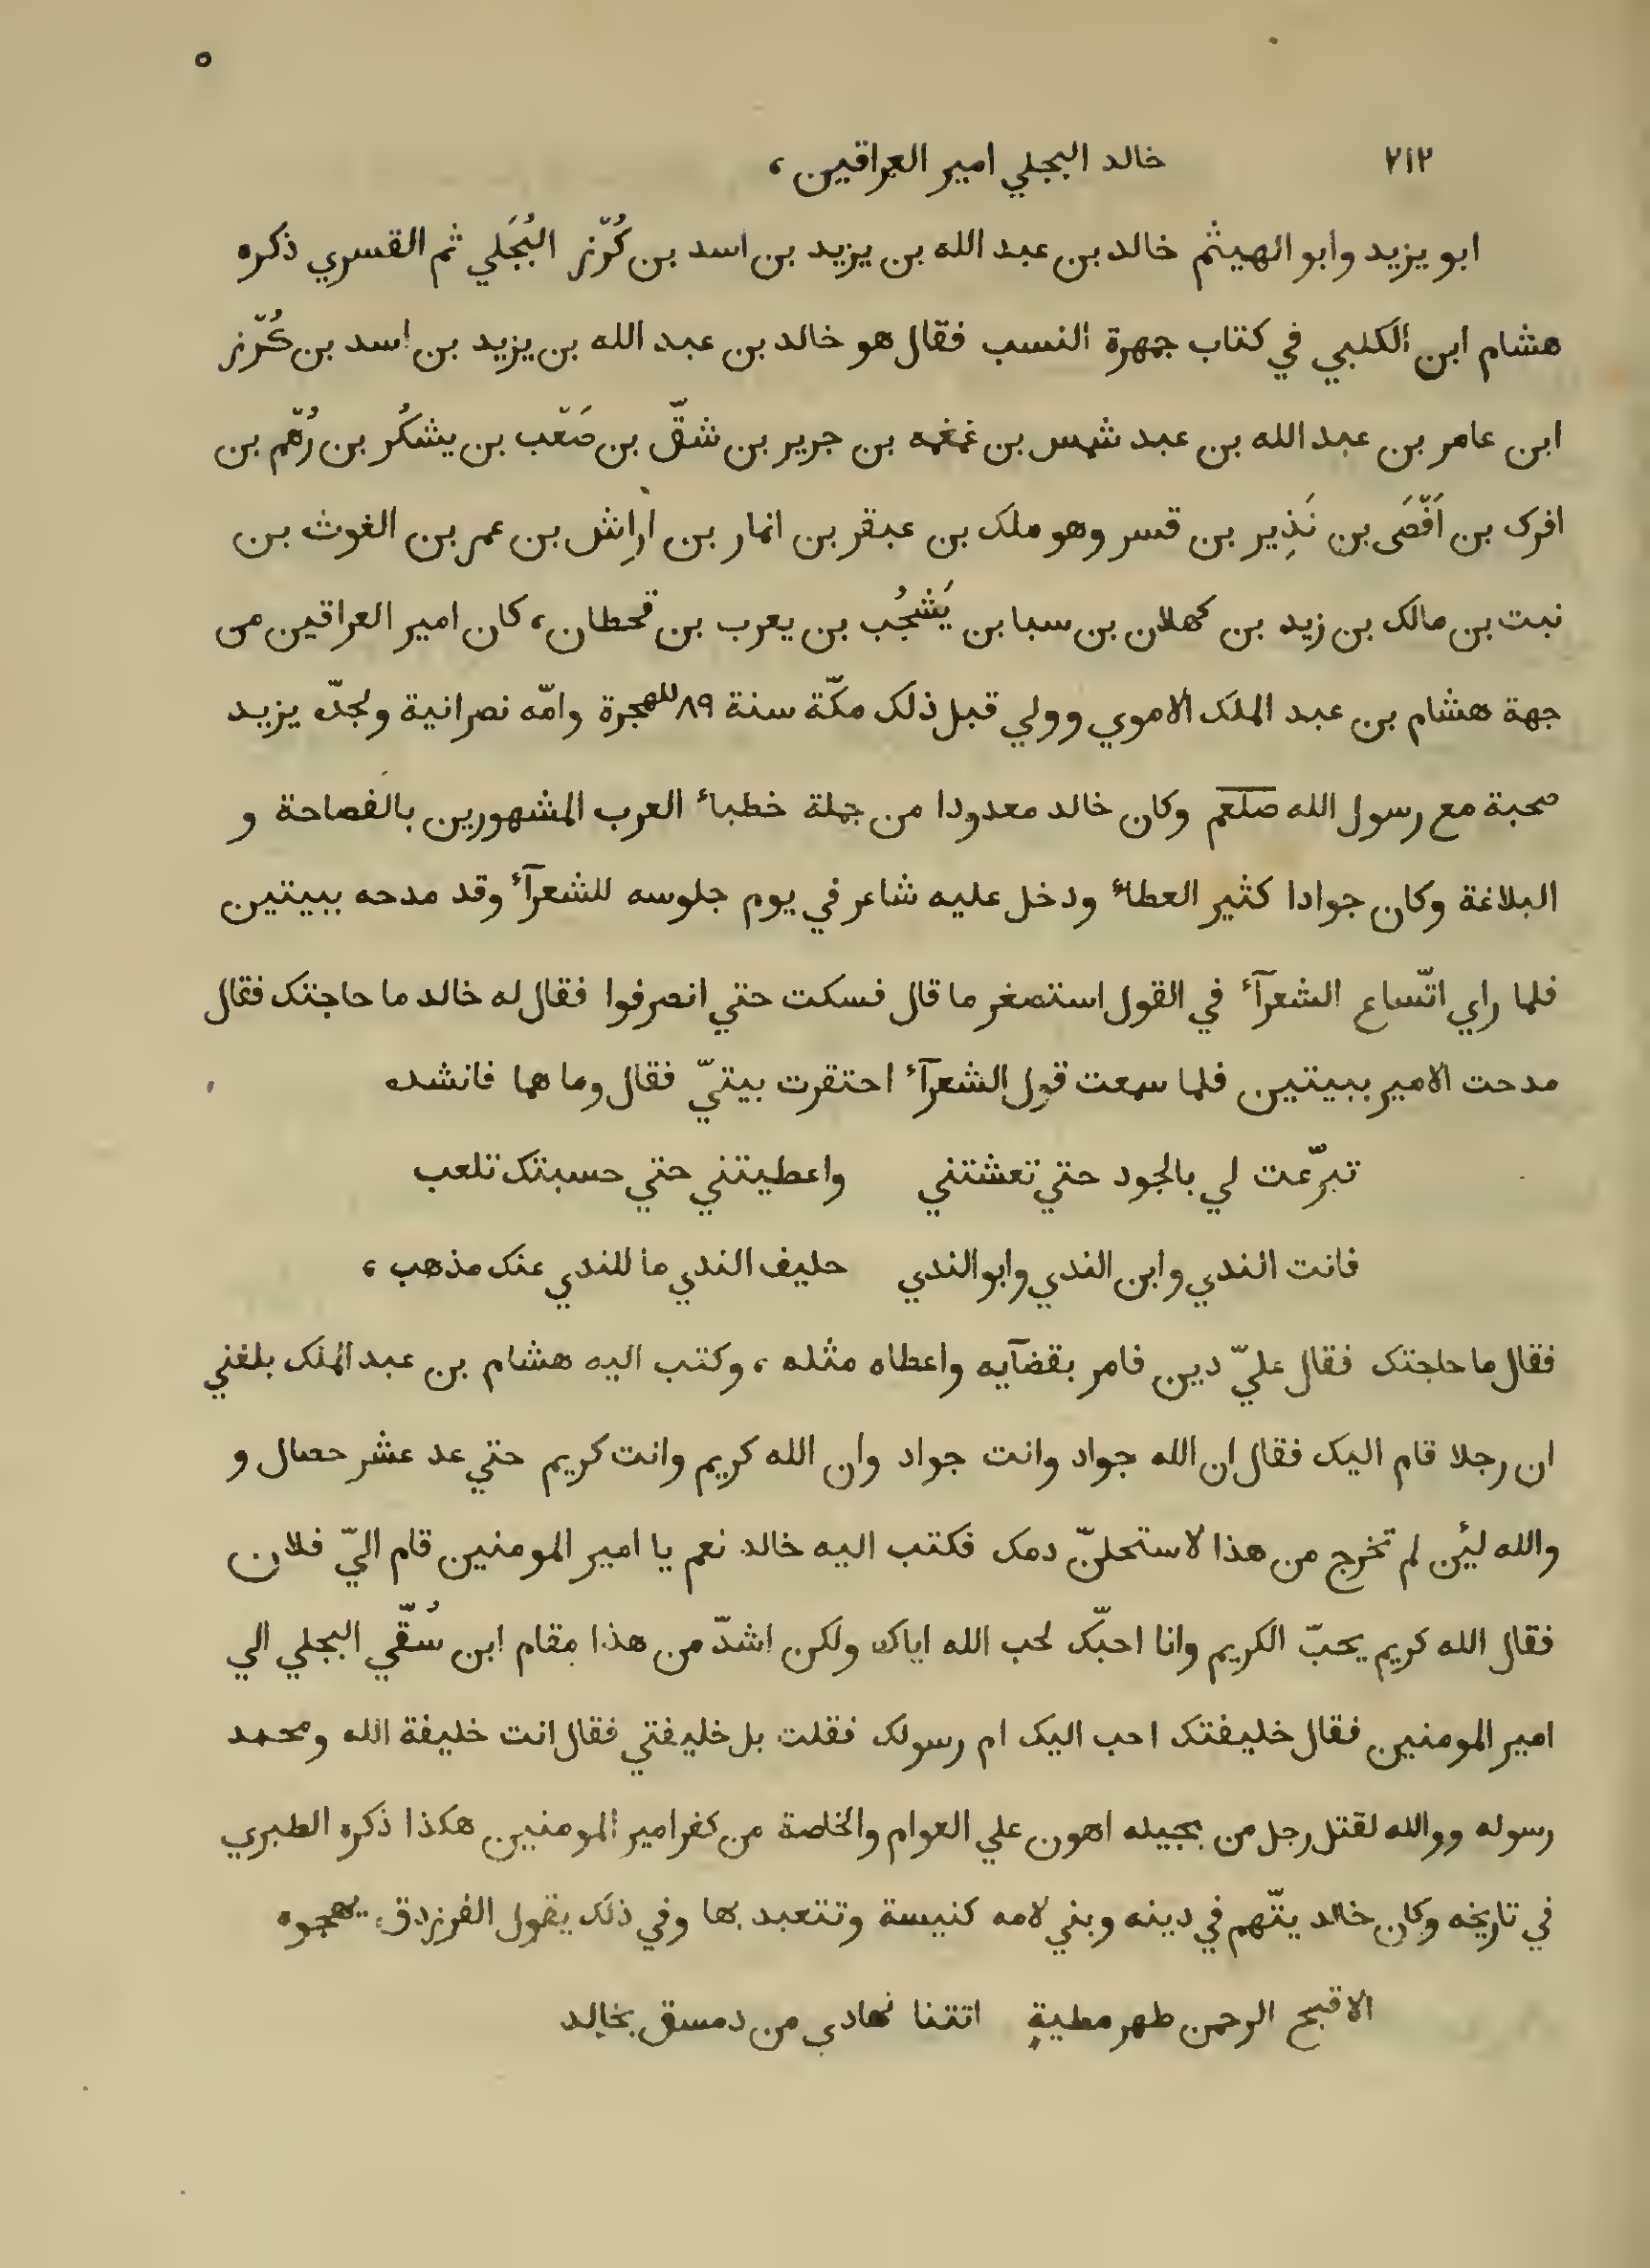 ٥
٢١٢ خالد البجلي امير العراقين ،
ابو يزيد وابو الهيثم خالد بن عبد الله بن يزيد بن اسد بن كُرّز البُجَلي ثم القسري ذكره
هشام ابن الكلبي في كتاب جمهرة النسب فقال هو خالد بن عبد الله بن يزيد بن اسد بن كُرّز
ابن عامر بن عبد الله بن عبد شمس بن غمغمه بن جرير بن شقّ بن صَعّب بن يشكُر بن رُهّم بن
افرك بن اَفّصَى بن نَذِير بن قسر وهو ملك بن عبقر بن انمار بن اراِش بن عمر بن الغوث بن
نبت بن مالك بن زيد بن كهلان بن سبا بن يَشْجُب بن يعرب بن قحطان ، كان امير العراقين من
جهة هشام بن عبد الملك الاموي وولي قبل ذلك مكّة سنة ٨٩ للهجرة وامّه نصرانية ولجدّه يزيد
صحبة مع رسول الله صلعم وكان خالد معدودا من جملة خطباء العرب المشهورين بالفصاحة و
البلاغة وكان جوادا كثير العطاء ودخل عليه شاعر في يوم جلوسه للشعرآء وقد مدحه ببيتين
فلما راي اتّساع الشعرآء في القول استصغر ما قال فسكت حتي انصرفوا فقال له خالد ما حاجتك فقال
مدحت الامير ببيتين فلما سمعت قول الشعرآء احتقرت بيتيّ فقال وما هما فانشده
تبرّعت لي بالجود حتي تعشتني واعطيتني حتي حسبتك تلعب
فانت الندي وابن الندي وابو الندي حليف الندي ما للندي عنك مذهب ،
فقال ما حاجتك فقال عليّ دين فامر بقضآيه واعطاه مثله ، وكتب اليه هشام بن عبد الملك بلغني
ان رجلا قام اليك فقال ان الله جواد وانت جواد وان الله كريم وانت كريم حتي عد عشر حصال و
والله لئن لم تخرج من هذا لاستحلنّ دمك فكتب اليه خالد نعم يا امير المومنين قام اليّ فلان
فقال الله كريم يحبّ الكريم وانا احبّك لحب الله اياك ولكن اشدّ من هذا مقام ابن سُقّي البجلي الي
امير المومنين فقال خليفتك احب اليك ام رسولك فقلت بل خليفتي فقال انت خليفة الله ومحمد
رسوله ووالله لقتل رجل من بجيله اهون علي العوام والخاصة من كفر امير المومنين هكذا ذكره الطبري
في تاريخه وكان خالد يتّهم في دينه وبني لامه كنيسة وتتعبد بها وفي ذلك يقول الفرزدق يهجوه
الا قبح الرحمن طهر مطيةٍ اتتنا تهادي من دمسق بخالِد